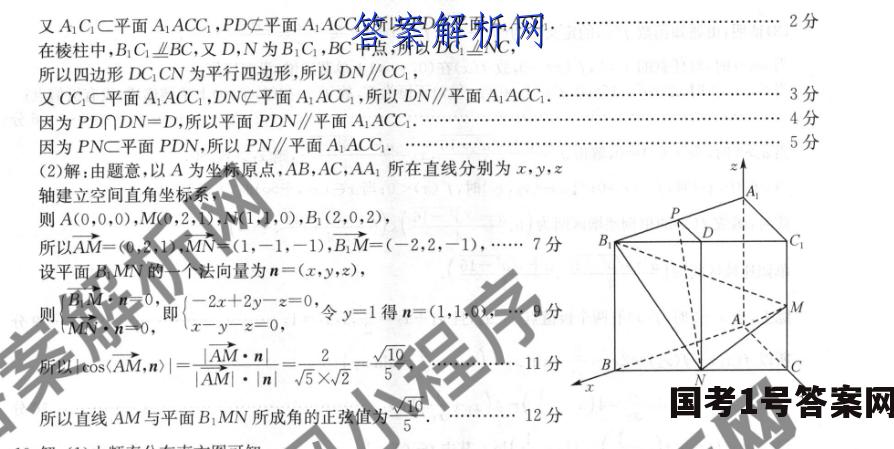 又 A₁C₁⊂平面 A₁ACC₁,PD⊄平面 A₁ACC₁,所以 PD∥平面 A₁ACC₁. …… 2 分
答案解析网
在棱柱中,B₁C₁∥BC,又 D,N 为 B₁C₁,BC 中点,所以 DC₁∥NC,
所以四边形 DC₁CN 为平行四边形,所以 DN∥CC₁,
又 CC₁⊂平面 A₁ACC₁,DN⊄平面 A₁ACC₁,所以 DN∥平面 A₁ACC₁. …… 3 分
因为 PD∩DN=D,所以平面 PDN∥平面 A₁ACC₁. …… 4 分
因为 PN⊂平面 PDN,所以 PN∥平面 A₁ACC₁. …… 5 分
(2)解:由题意,以 A 为坐标原点,AB,AC,AA₁ 所在直线分别为 x,y,z
轴建立空间直角坐标系,
则 A(0,0,0),M(0,2,1),N(1,1,0),B₁(2,0,2),
所以AM=(0,2,1),MN=(1,-1,-1),B₁M=(-2,2,-1), …… 7 分
设平面 B₁MN 的一个法向量为 n=(x,y,z),
则{B₁M·n=0, MN·n=0, 即{-2x+2y-z=0, x-y-z=0, 令 y=1 得 n=(1,1,0), … 9 分
所以|cos⟨AM,n⟩|=|AM·n|/|AM|·|n|=2/√5×√2=√10/5, …… 11 分
所以直线 AM 与平面 B₁MN 所成角的正弦值为√10/5. …… 12 分
z
A₁
P
D
B₁
C₁
M
A
B
N
C
x
国考1号答案网
答案解析网
小程序